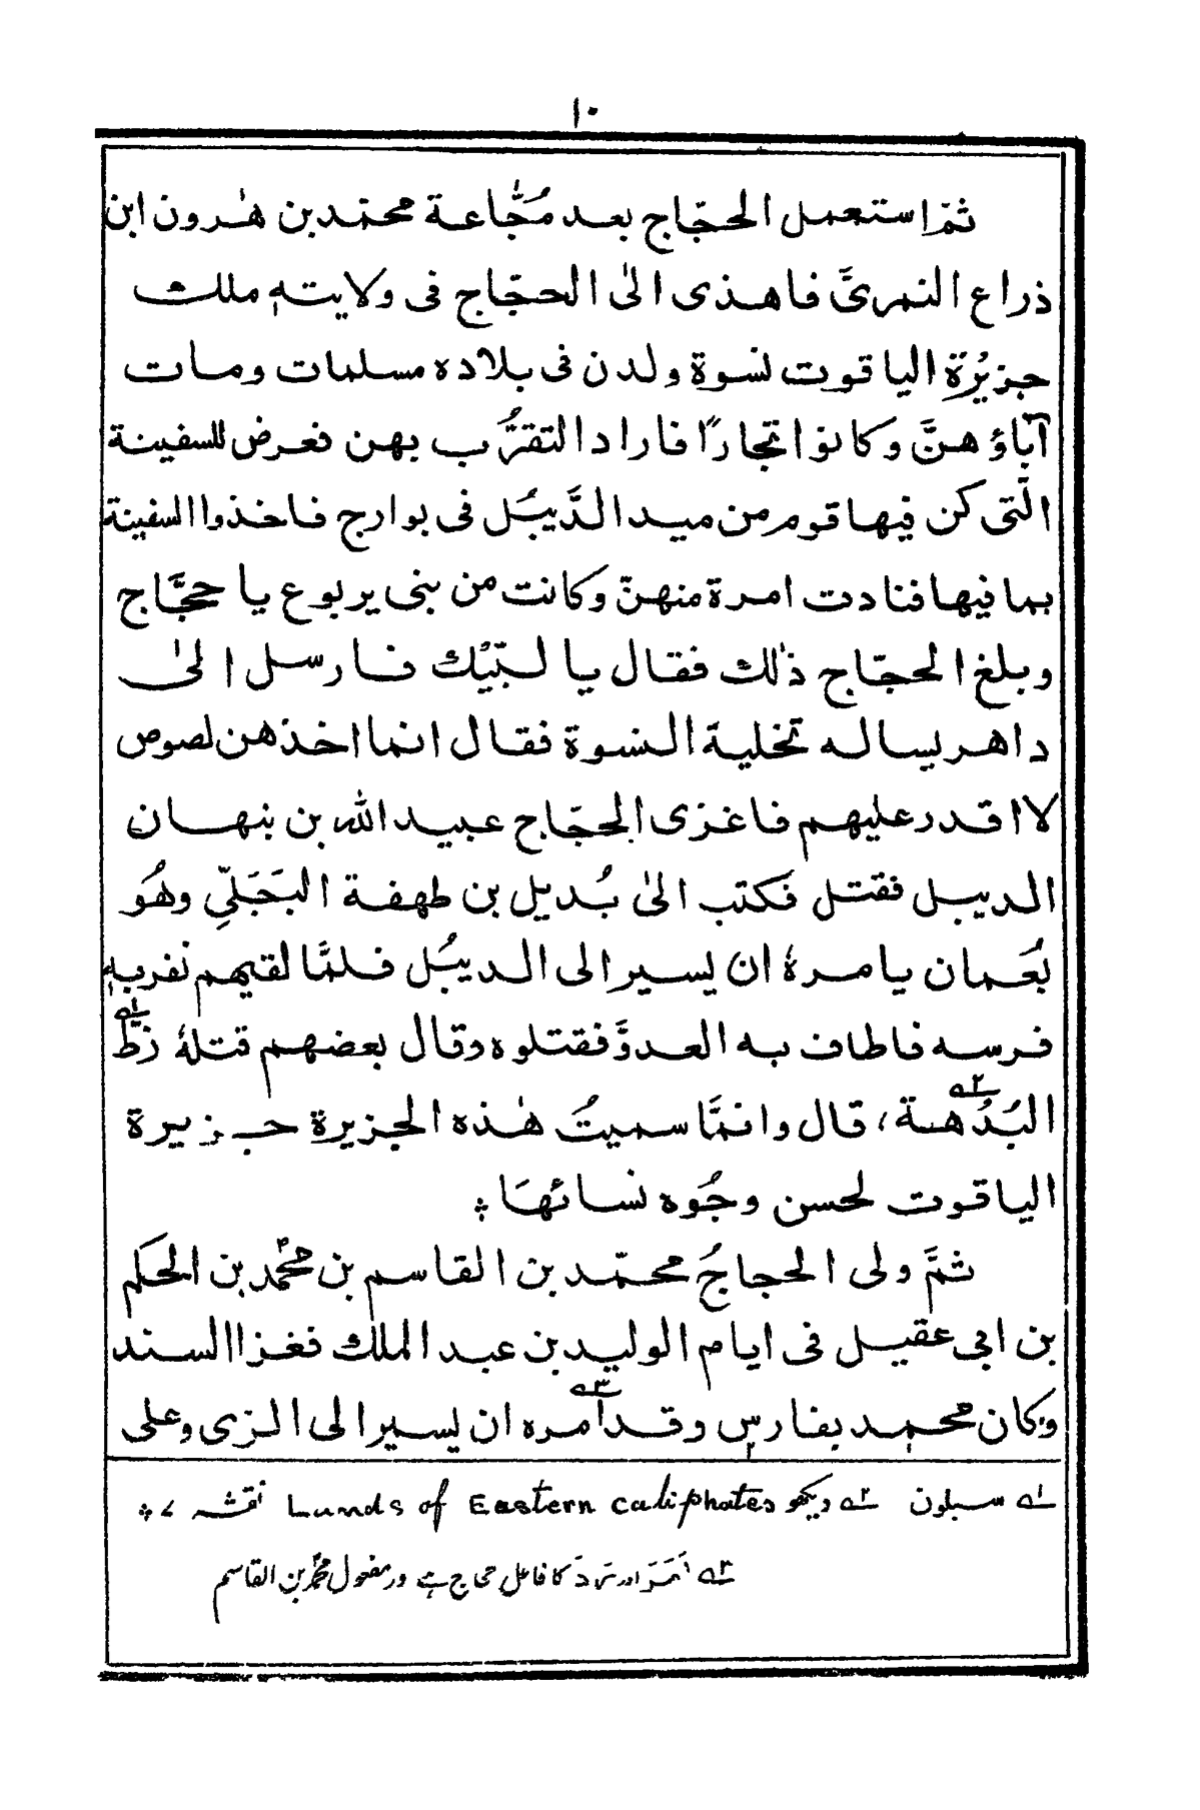 ١٠
ثمّ استعمل الحجّاج بعد مُجّاعة محمّد بن هٰرون ابن
ذراع النمریَّ فاهذی الیٰ الحجّاج فی ولایته ملك
جزیُرة الیاقوت نسوة ولدن فی بلاده مسلمات ومات
آباؤهنَّ وكانوا تجارًا فاراد التقرُّب بهن فعرض للسفینة
الّتی كن فیها قوم من مید الدَّیبُل فی بوارج فاخذوا السفینة
بما فیها فنادت امرة منهنّ وكانت من بنی یربوع یا حجَّاج
وبلغ الحجّاج ذٰلك فقال یا لبّیْك فارسل الیٰ
داهر یساله تخلیة النسوة فقال انما اخذهن لصوص
لا اقدر علیهم فاغزی الحجّاج عبید الله بن بنهان
الدیبل فقتل فكتب الیٰ بُدیل بن طهفة البَجَلّیِ وهُو
بُعَمان یامرهُ ان یسیر الی الدیبُل فلمَّا لقیهم نفر به
فرسه فاطاف به العدوَّ فقتلوه وقال بعضهم قتلهُ زطُّ ١ــه
البُدُهة ٢ــه، قال وانمَّا سمیتُ هٰذه الجزیرة جزیرة
الیاقوت لحسن وجُوه نسائهَا ❊
ثمَّ ولی الحجاجُ محمّد بن القاسم بن محمّد بن الحكم
بن ابی عقیل فی ایام الولید بن عبد الملك فغزا السند
وكان محمد بفارس وقد امره ٣ــه ان یسیر الی الری وعلی
١ــه سبلون ٢ــه دیکھو Lunds of Eastern caliphates نقشہ ۷ ❊
٣ــه اَمَرَ اور رَدَّ کا فاعل حجاج ہے ور مفعول محمد بن القاسم